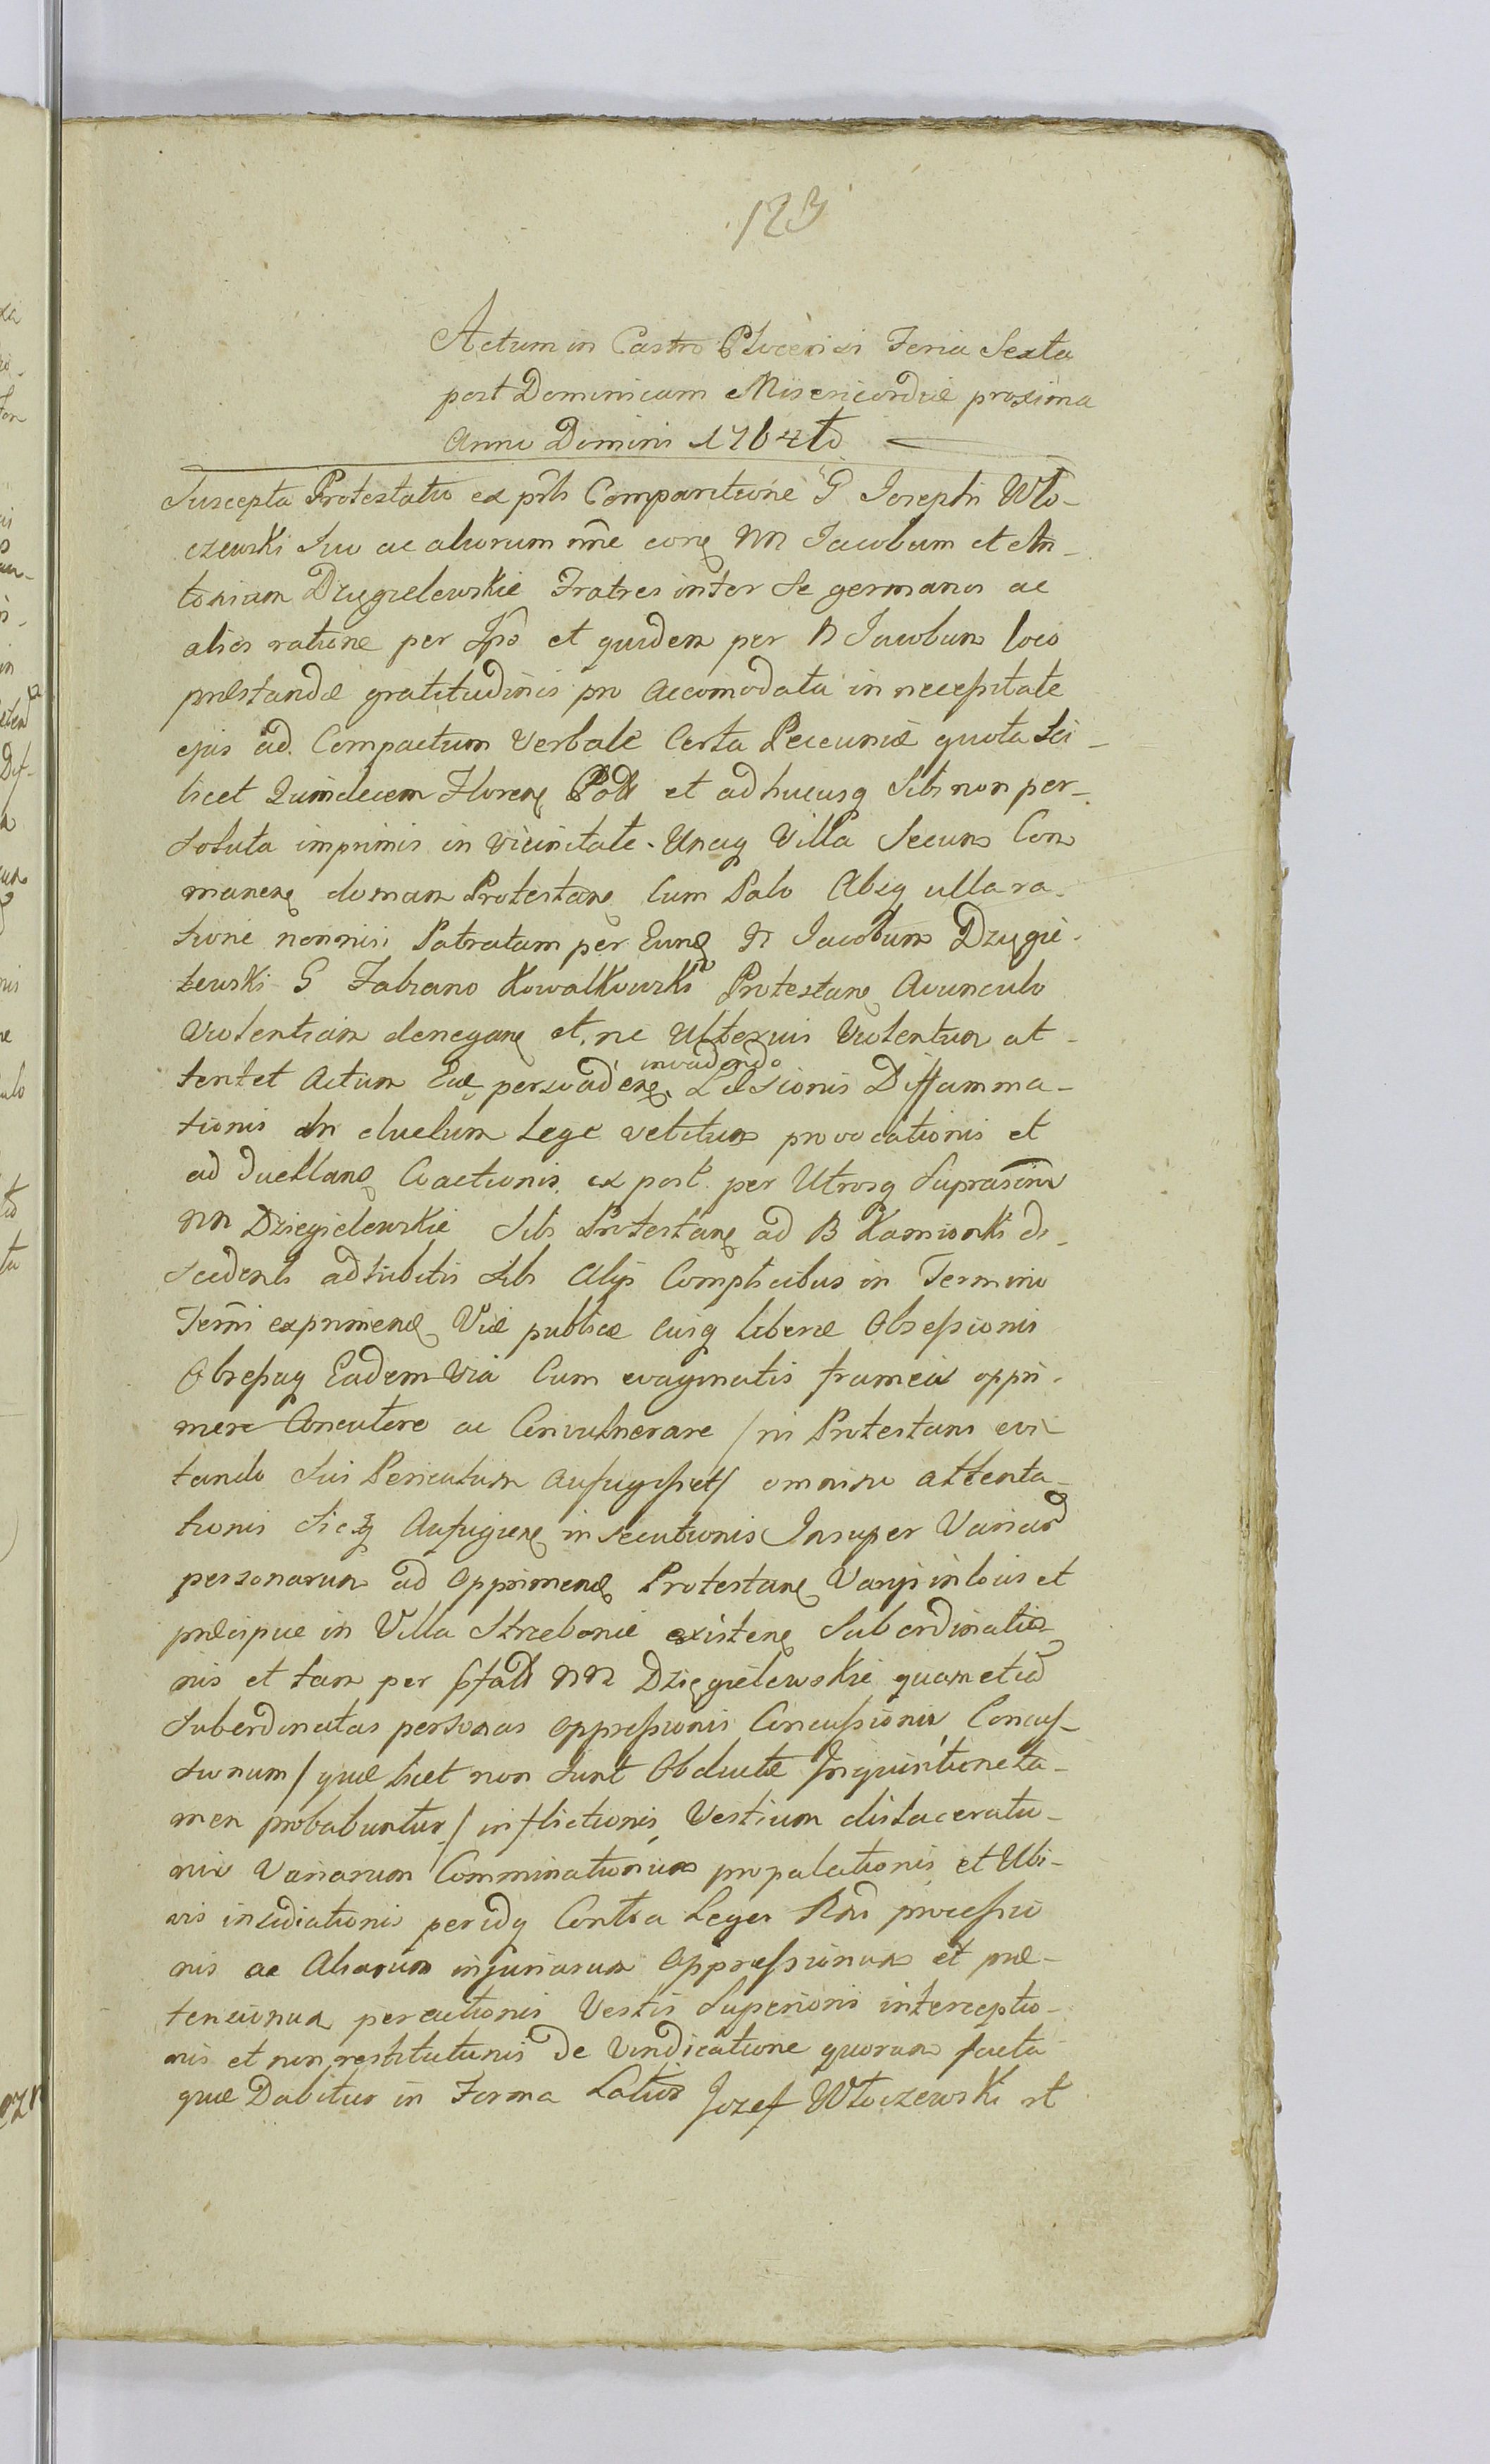 123
Actum in Castro Plocensi Feria Sexta
post Dominicam Misericordiæ proxima
Anno Domini 1764to
Suscepta Protestatio ex pñti Comparitione G Josephi Wło-
czewski Suo ac aliorum nñe con NN Jacobum et An-
tonium Dzięgielewskie Fratres inter Se germanos ac
alios ratione per Ipõ et quidem per N Jacobum loco
præstandæ gratitudinis pro accomodata in necessitate
ejus ad Compactum Verbale Certa Pecuniæ quota Sci-
licet Quindecem Floren Poll et adhucusq Sibi non per-
soluta imprimis in vicinitate Unaq Villa Secum Com
manen domum Protestan Cum Palo Absq ulla ra-
tione nonnisi Patratam per Eund N Jacobum Dzięgie-
lewski G Fabiano Kowalkowski Protestan Avunculo
Violentiam denegan et ne Ulterius Violentum at-
tentet Actum Eid persuaden invadendo Læsionis Diffamma-
tionis An duelum Lege vetitum provocationis et
ad Duelland Coactionis ex post per Utrosq Suprascriu
NN Dzięgielewskie Sibi Protestan ad B Kamionki di-
scedenti adhibitis Sibi Alijs Complicibus in Termino
Termi exprimend Viæ publicæ Cuiq liberæ Obsessionis
Obsessaq Eadem Via Cum evaginatis frameis oppri-
mere Concutere ac Convulnerare / ni Protestans evi-
tando Sui Periculum Aufugisset / omnino attenta-
tionis Sicq Aufugien insecutionis Insuper Variar
personarum ad Opprimend Protestan Varijs in locis et
præcipue in Villa Strzebonie existen Subordinatio-
nis et tam per pfatt NN Dzięgielewskie quam et id
Subordinatas personas oppressionis Concussionis Concus-
sionum / quæ licet non sunt Obductæ Inquisitione ta-
men probabuntur / inflictionis Vestium dislaceratio-
nis Variarum Comminationum propalationis et Ubi-
vis insidiationis per idq Contra Leges Rni processio
nis ac Aliarum injuriarum Oppressionum et præ-
tensionum percutionis Vestis Superioris interceptio-
nis et non restitutionis De vindicatione quorum facta
quæ Dabitur in Forma Latiõ Jozef Włoczewski